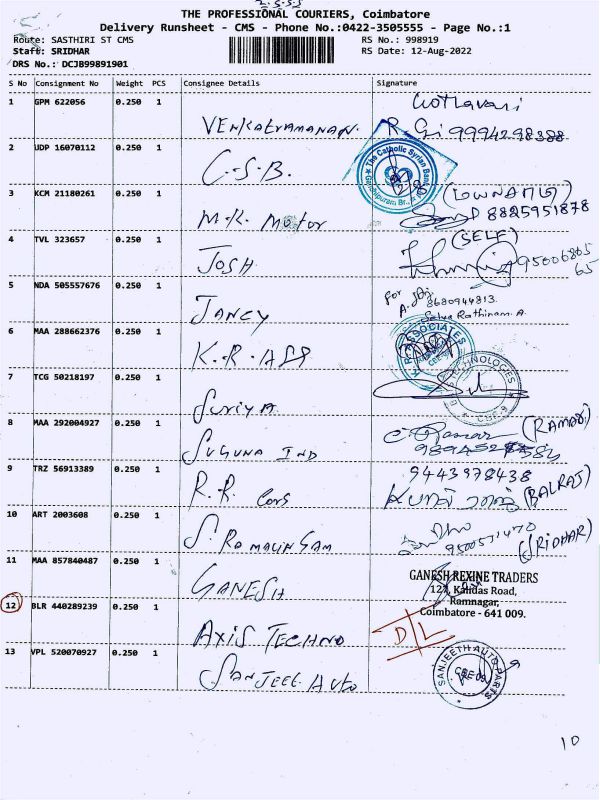 THE PROFESSIONAL COURIERS, Coimbatore
Delivery Runsheet - CMS - Phone No.:0422-3505555 - Page No.:1
Route: SASTHIRI ST CMS
RS No.: 998919
Staff: SRIDHAR
RS Date: 12-Aug-2022
DRS No.: DCJB99891901
S No Consignment No Weight PCS Consignee Details Signature
1 GPM 622056 0.250 1
VENKATRAMANAN. 9994298388
2 UDP 16070112 0.250 1
C.S.B. The Catholic Syrian Bank
3 KCM 21180261 0.250 1
M.K. Motor 8825951878
4 TVL 323657 0.250 1 (SELF)
JOSH
5 NDA 505557676 0.250 1 for
8680944813.
JANCY Selva Rathinam.A.
6 MAA 288662376 0.250 1
K.R. ASS
7 TCG 50218197 0.250 1 TECHNOLOGIES
SURIYA
8 MAA 292004927 0.250 1 (RAMAR)
SUGUNA IND
9 TRZ 56913389 0.250 1 9443978438
R.R. Cons (BALRAJ)
10 ART 2003608 0.250 1
S. RAMALINGAM (SRIDHAR)
11 MAA 857840487 0.250 1 GANESH REXINE TRADERS
GANESH 127, Kalidas Road,
Ramnagar,
12 BLR 440289239 0.250 1 Coimbatore - 641 009.
AXIS TECHNO D/L
13 VPL 520070927 0.250 1 SANJEETH AUTO PARTS
SANJEET. AUTO CBE-09
10